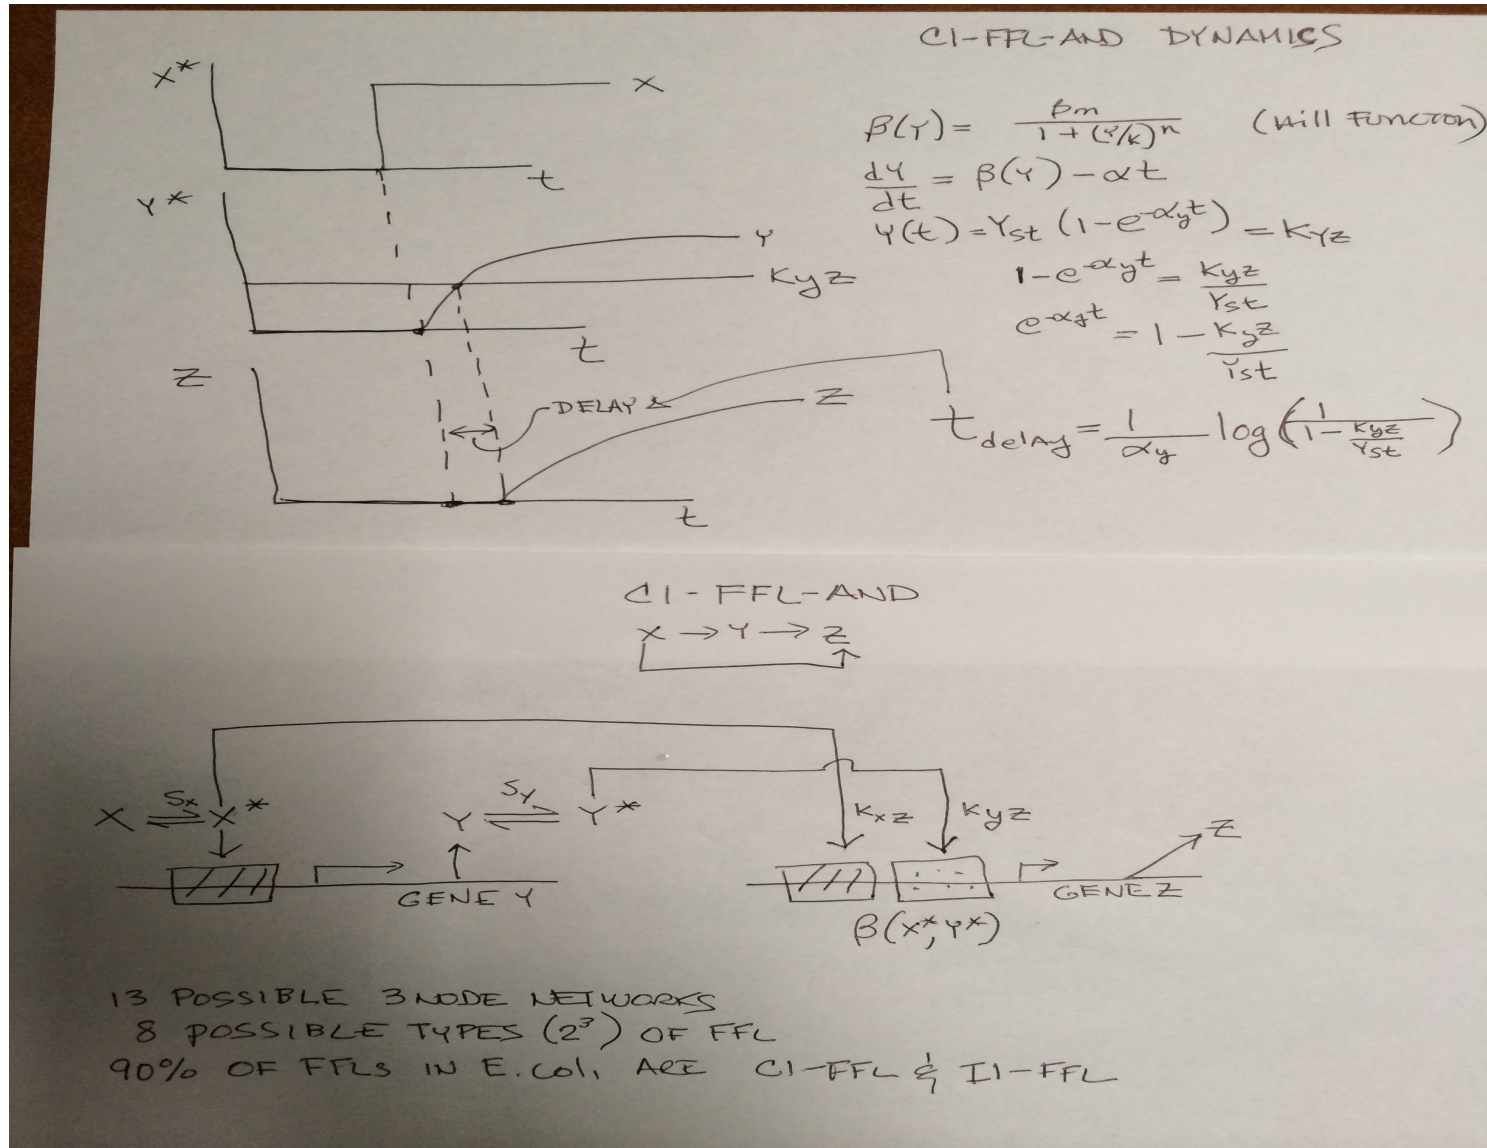 C1-FFL-AND DYNAMICS
X*
X
t
β(Y) = βm / 1 + (Y/K)^n (Hill Functron)
dY/dt = β(Y) - αt
Y*
Y(t) = Yst (1 - e^-αyt) = KYZ
Y
Kyz
1 - e^-αyt = Kyz / Yst
e^-αyt = 1 - Kyz / Yst
t
Z
DELAY
Z
t delAy = 1/αy log (1 / 1 - Kyz/Yst)
t
C1-FFL-AND
X → Y → Z
X ⇌ X*
Sx
Y ⇌ Y*
SY
Kxz
Kyz
Z
GENE Y
GENE Z
β(X*, Y*)
13 POSSIBLE 3 NODE NETWORKS
8 POSSIBLE TYPES (2³) OF FFL
90% OF FFLS IN E. coli ARE C1-FFL & I1-FFL